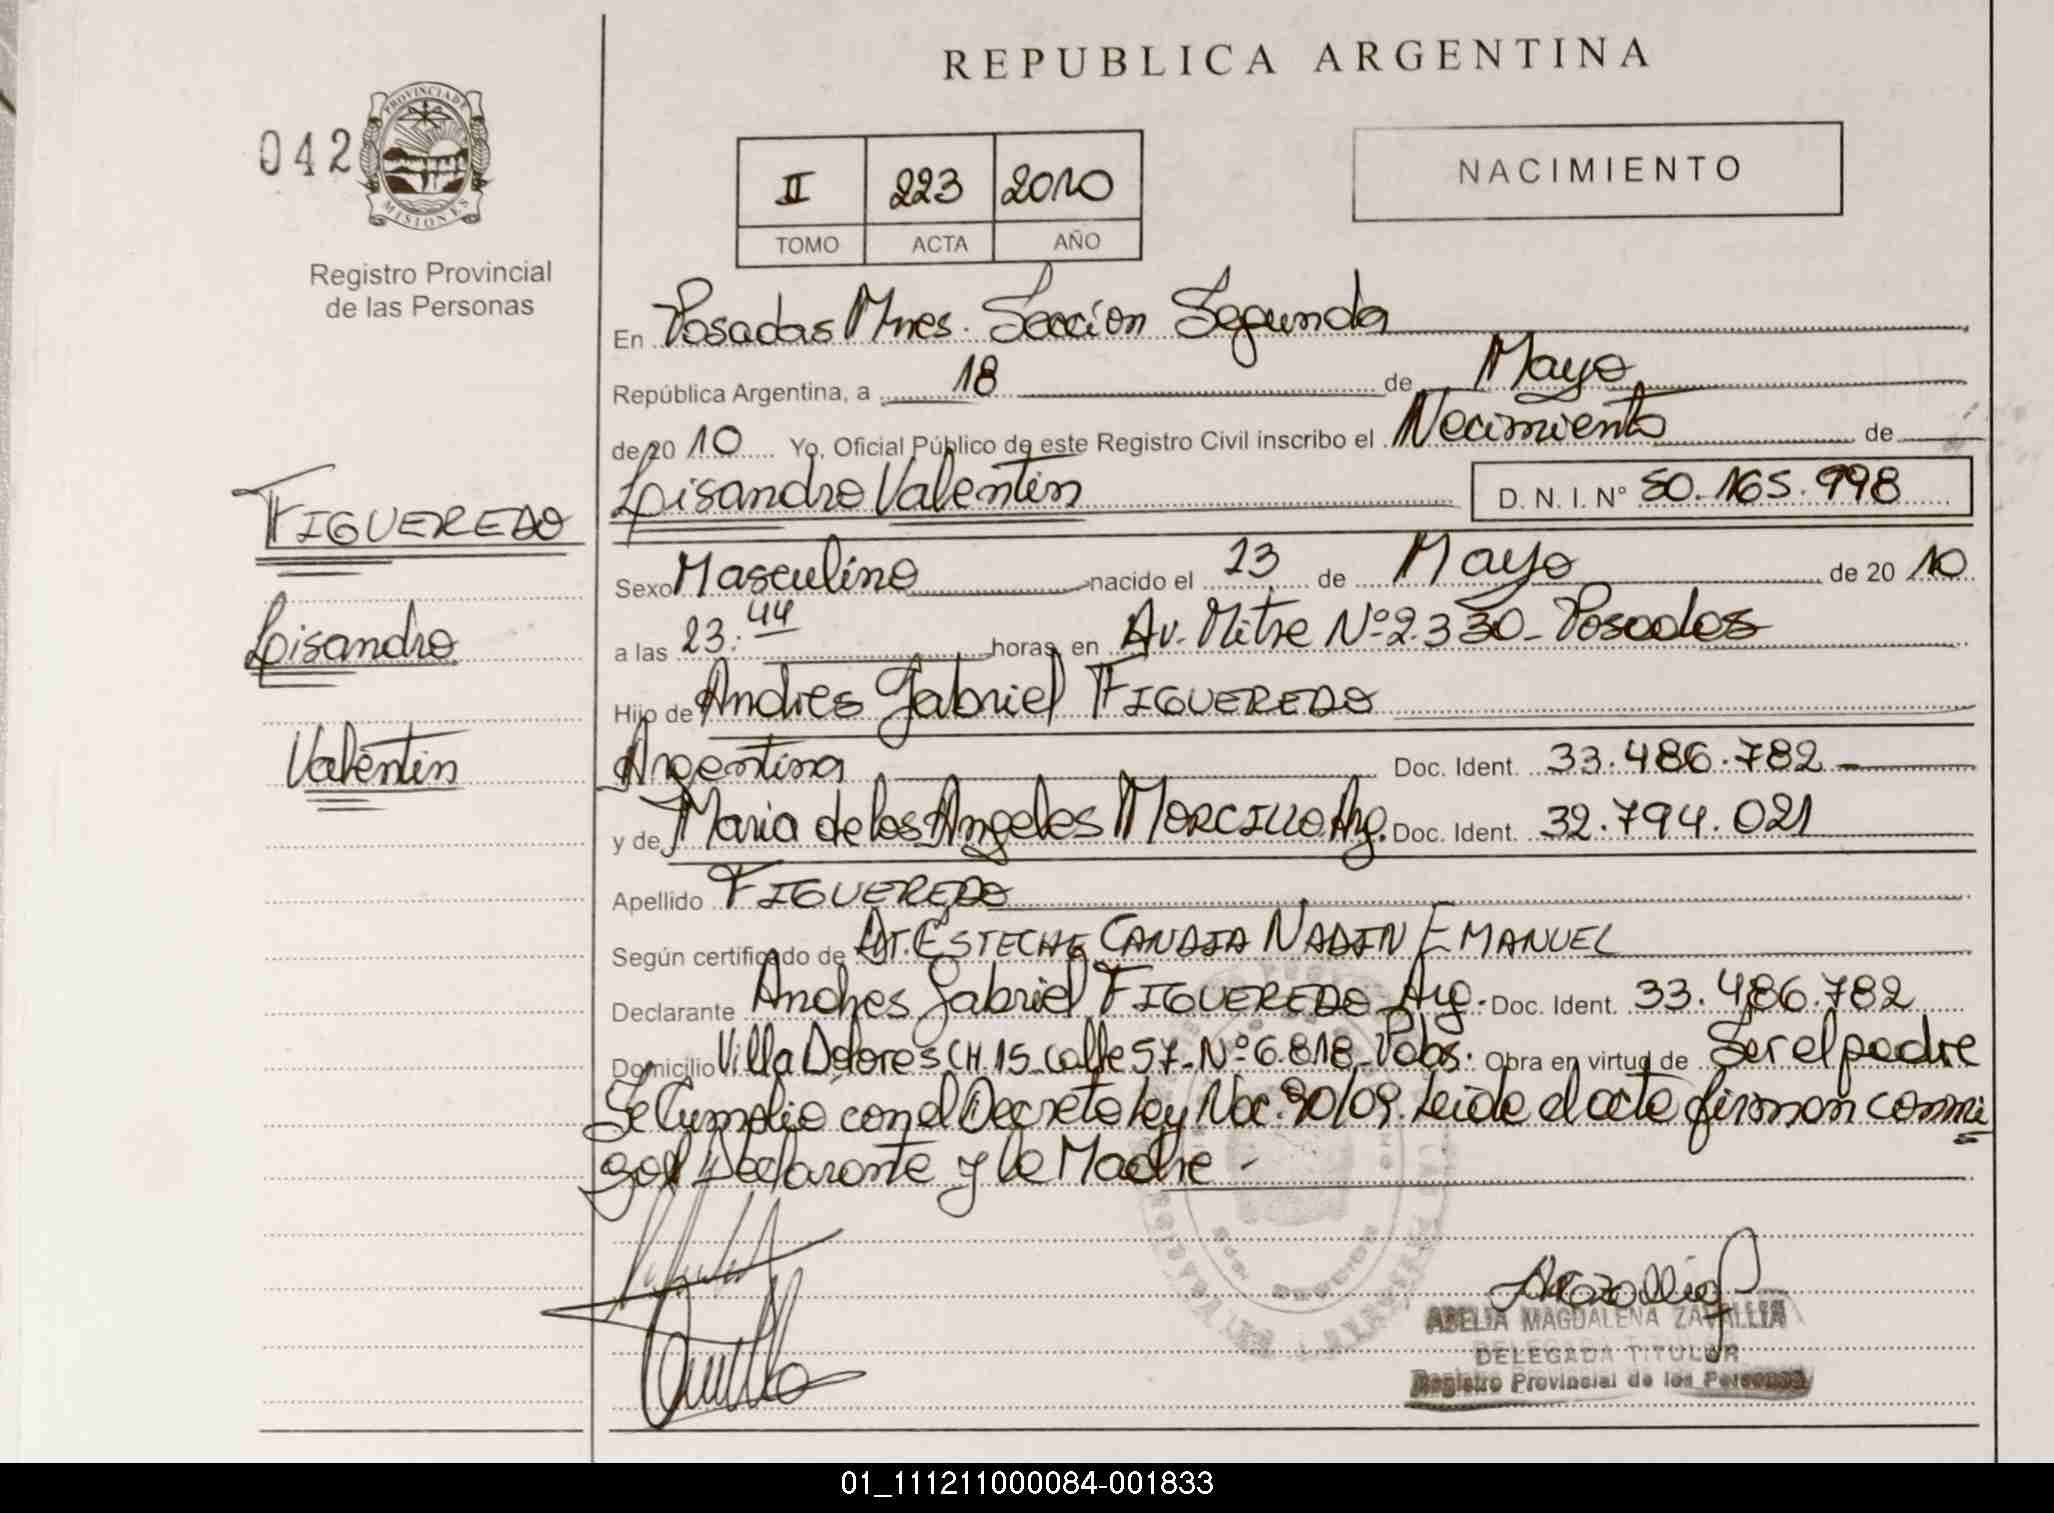 REPUBLICA ARGENTINA
042
PROVINCIA DE
MISIONES
Registro Provincial
de las Personas
II 223 2010
TOMO ACTA AÑO
NACIMIENTO
En Posadas Mnes. Sección Segunda
República Argentina, a 18 de Mayo
de 20 10 Yo, Oficial Público de este Registro Civil inscribo el Nacimiento de
Lisandro Valentin D. N. I. N° 50.165.998
FIGUEREDO
Lisandro
Valentin
Sexo Masculino nacido el 13 de Mayo de 20 10
a las 23:44 horas, en Av. Mitre Nº 2.330 - Posadas
Hijo de Andres Gabriel FIGUEREDO
Argentina Doc. Ident. 33.486.782
y de Maria de los Angeles MORCILLO Arg. Doc. Ident. 32.794.021
Apellido FIGUEREDO
Según certificado de ESTECHE CANDIA NADIN EMANUEL
Declarante Andres Gabriel FIGUEREDO Arg. Doc. Ident. 33.486.782
Domicilio Villa Dolores CH. 15 - Calle 57 - Nº 6.818 - Pdas. Obra en virtud de Ser el padre
Se Cumplio con el Decreto Ley Nac. 90/09. Leida el acta firman conmi
go el Declarante y la Madre -
ADELIA MAGDALENA
DELEGADA TITULAR
Registro Provincial de las Personas
01_111211000084-001833